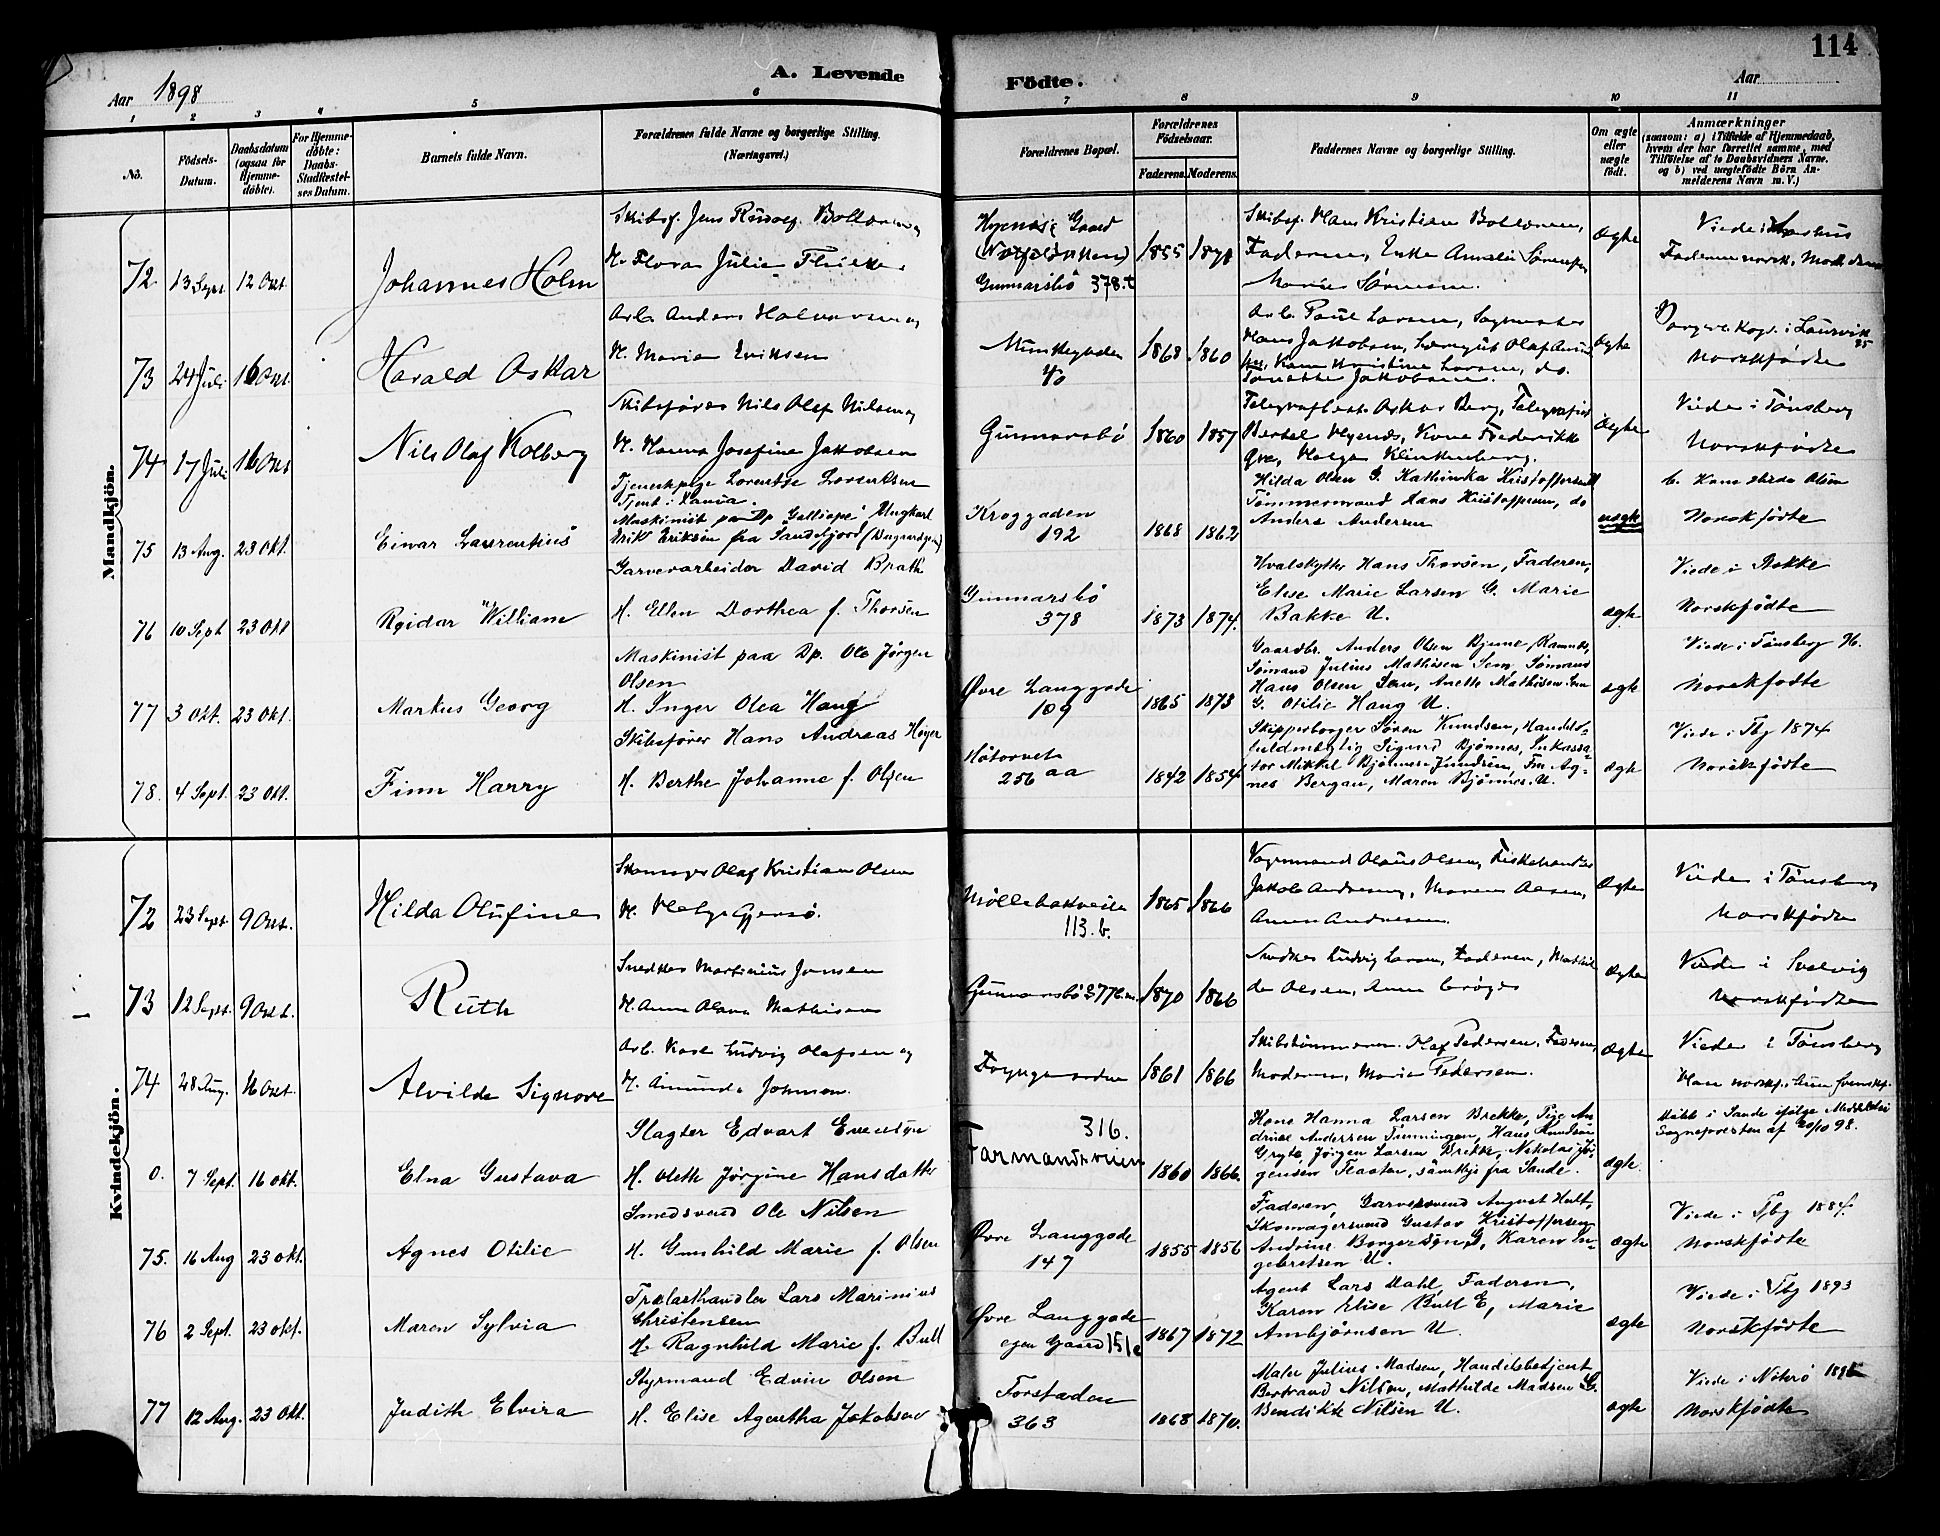 114
Aar 1898
A. Levende
Födte.
Aar
1 2 3 4 5 6 7 8 9 10 11
No.
Födsels-Datum.
Daabsdatum (ogsaa för Hjemmedöbte).
For Hjemmedöbte: Daabs-Stadfestelses Datum.
Barnets fulde Navn.
Forældrenes fulde Navne og borgerlige Stilling.
(Næringsvei.)
Forældrenes Bopæl.
Forældrenes Födselsaar.
Faderens. Moderens.
Faddernes Navne og borgerlige Stilling.
Om ægte eller uægte födt.
Anmærkninger
(saasom: a) i Tilfælde af Hjemmedaab, hvem der har forrettet samme, med Tilföielse af to Daabsvidners Navne, og b) ved uægtefödte Börn Anmelderens Navn m. V.)
Mandkjön.
72 13 Sept 12 Oct.
Johannes Holm
Skibsf. Jens
H. Flora Julie
Gaard
Gunnarsbö 378.t
1855
Skibsf. Hans Kristian
Faderen, Enke Sörensen
Marie Sörensen.
Ægte
Viede i Aarhus
Faderen norsk, Mod. dansk
73 24 Juli 16 Oct.
Harald Oskar
Arb. Anders Halvorsen og
H. Maria Eriksen
Munkegaden
40
1868 1860
Arb. Paul Larsen,
Hans Jakobsen, Olaf
Kone Kristine Larsen, do.
Jakobsen.
Ægte
Borgerl. Kop. i Laurvik 95
Norskfödte
74 17 Juli 16 Oct
Nils Olaf Kolberg
Skibsförer Nils Olaf Nilsen og
H. Hanna Josefine Jakobsen
Gunnarsbö
1860 1857
Telegrafbest. Oskar Berg, Telegrafist
Bertel Kone Frederikke
Helga Klinkenberg.
Ægte
Viede i Tönsberg
Norskfödte
75 13 Aug. 23 Okt.
Einar Laurentius
Tjenestepige Lorentse Lorentsen
Tjent i
Maskinist paa Dp "Calliope" Ungkarl
Erik Eriksen fra Sandefjord
Kroggaden
192
1868 1862
Hilda Olsen G. Kathinka Kristoffersen U
Tömmermand Hans Kristoffersen, do
Anders Andersen
uægte
b. Kone Hilda Olsen
Norskfödte
76 10 Sept 23 Okt
Reidar William
Garverarbeider David Brath
H. Ellen Dorthea f. Thorsen
Gunnarsbö
378
1873 1874.
Hvalskytte Hans Thorsen, Faderen,
Elise Marie Larsen G. Marie
Bakke U.
ægte
Viede i Bokke
Norskfödte
77 3 Okt. 23 Okt.
Markus Georg
Maskinist paa Dp. Ole Jörgen
Olsen
H. Inger Olea Haug
Övre Langgade
109
1865 1873
Gaardbr. Anders Olsen Bjune, Ramnes,
Sömand Julius Mathisen Sem, Sömand
Hans Olsen Sem, Anette Mathisen Sem
G. Otilie Haug U.
ægte
Viede i Tönsberg 96.
Norskfödte
78. 4 Sept. 23 Okt.
Finn Harry
Skibsförer Hans Andreas Höyer
H. Berthe Johanne f. Olsen
Hötorvet
256 aa
1842 1854
Skipperborger Sören Knudsen, Handels-
fuldmægtig Sigurd Bjönnes, Inkassa-
tor Mikkel Bjönnes Jundsen, Fru Ag-
nes Bergan, Maren Bjönnes. U.
ægte
Viede i Tbg 1874
Norskfödte
Kvindekjön.
72 23 Sept. 9 Oct.
Hilda Olufine
Skomager Olaf Kristian Olsen
H. Helga Gjersö.
Möllebakveien
113.b.
1865 1866
Vognmand Olaus Olsen, Fiskehandler
Jakob Andresen, Maren Olsen,
Anna Andresen.
Ægte
Viede i Tönsberg
Norskfödte
73 12 Sept. 9 Oct.
Ruth
Snedker Martinius Jensen
H. Anna Olava Mathisen
Gunnarsbö 377
1870 1866
Snedker Ludvig Larsen, Faderen, Mathil
de Olsen, Anna Cröger
Ægte
Viede i Svelvig
Norskfödte
74 28 Aug. 16 Oct.
Alvilde Signore
Arb. Karl Ludvig Olafsen og
H. Amunda Johnsen.
1861 1866
Skibstömmermn. Olaf Pedersen, Faderen,
Moderen, Marie Pedersen.
Ægte
Viede i Tönsberg
Han norskf. hun svenskf.
0. 7 Sept. 16 Okt.
Elna Gustava
Slagter Edvart Evensen
H. Oleth Jörgine Hansdatter
316.
Farmandsveien
1860 1866.
Kone Hanna Larsen Brekke, Pige An
drine Andersen Tunningen, Hans Knudsen
Gryte, Jörgen Larsen Brekke, Nikolaj Jör-
gensen Flaaten, samtlige fra Sande.
ægte.
Döbt i Sande ifölge Meddelelse
Sognepresten af 20/10 98.
75. 16 Aug 23 Okt.
Agnes Otilie
Smedsvend Ole Nilsen
H. Gunhild Marie f. Olsen
Övre Langgade
147
1855 1856
Faderen, Garversvend August Hult,
Skomagersvend Gustav Kristoffersen
Andrine Borgersen G, Karen In-
gebretsen U.
ægte
Viede i Tbg 1884.
Norskfödte
76 2 Sept. 23 Okt.
Maren Sylvia
Trælasthandler Lars Marinius
Christensen
H. Ragnhild Marie f. Bull
Övre Langgade
egen Gaard 151c
1867 1872
Agent Lars Dahl, Faderen,
Karen Elise Bull E, Marie
Ambjörnsen U.
ægte
Viede i Tbg 1893
Norskfödte
77 12 Aug. 23 Okt.
Judith Elvira
Styrmand Edvin Olsen
H. Elise Agnetha Jakobsen
Forstaden
363
1868 1870.
Maler Julius Madsen, Handelsbetjent
Bertrand Nilsen, Mathilde Madsen G.
Bendikte Nilsen U.
ægte
Viede i Nöterö
Norskfödte